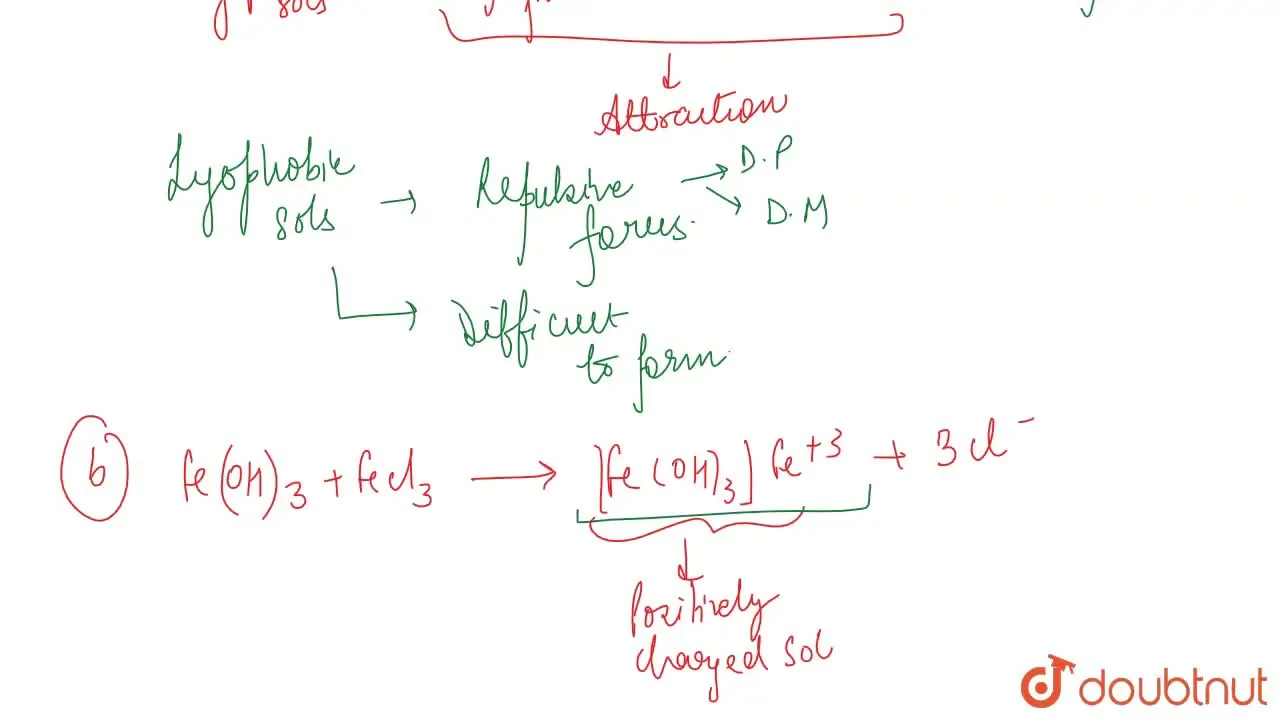 sols
Attraction
Lyophobic
sols → Repulsive
forces.
→ D.P
→ D.M
→ Difficult
to form
b Fe(OH)3 + FeCl3 → [Fe(OH)3] Fe+3 + 3Cl-
Positively
charged sol
doubtnut